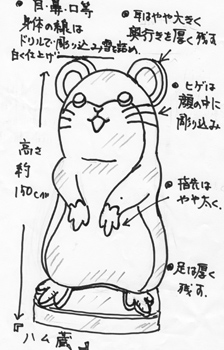 ● 目・鼻・口等
身体の線は
ドリルで彫り込み雪詰め、
白く仕上げ。
● 耳はやや大きく
奥行きを厚く残す
● ヒゲは
顔の中に
彫り込み
高さ
約
150cm
● 指先は
やや太く。
● 足は厚く
残す。
『ハム蔵』